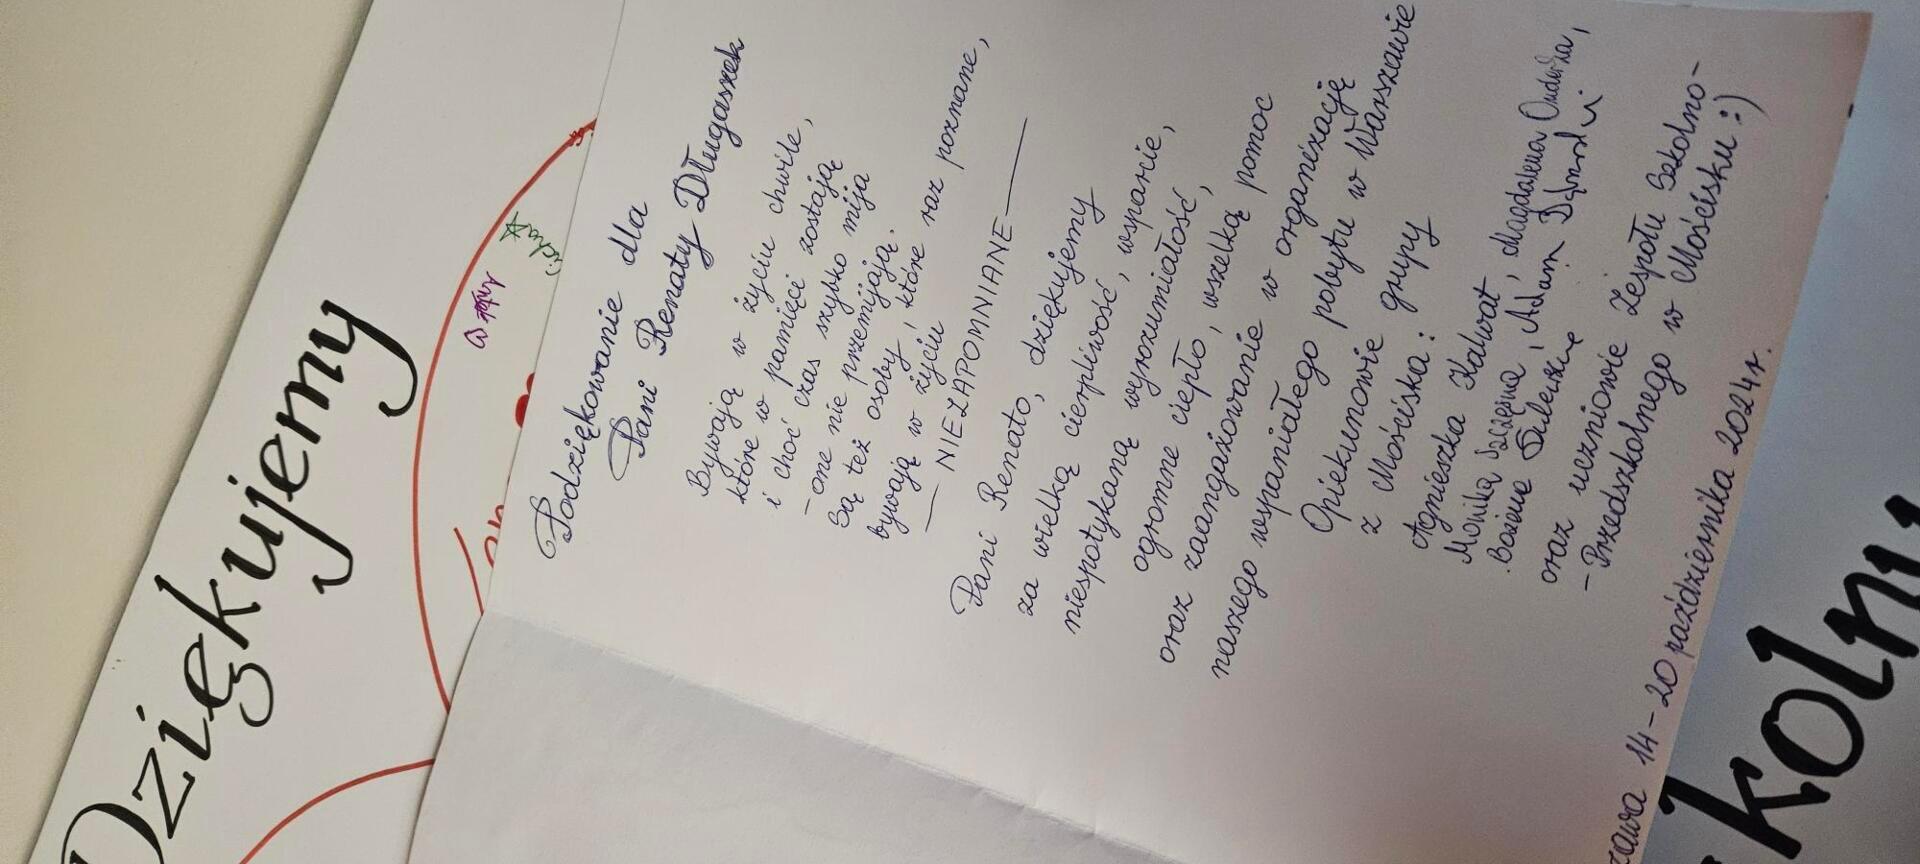 Dziękujemy
Podziękowanie dla
Pani Renaty Długaszek
Bywają w życiu chwile,
które w pamięci zostają
i choć czas szybko mija
- one nie przemijają.
Są też osoby, które raz poznane,
bywają w życiu
NIEZAPOMNIANE
Pani Renato, dziękujemy
za wielką cierpliwość, wsparcie,
niespotykaną wyrozumiałość,
ogromne ciepło, wszelką pomoc
oraz zaangażowanie w organizację
naszego wspaniałego pobytu w Warszawie
Opiekunowie grupy
z Mościska:
Agnieszka Kalwat, Magdalena
Monika, Adam
oraz uczniowie Zespołu Szkolno-
- Przedszkolnego w Mościsku :)
14-20 października 2024r.